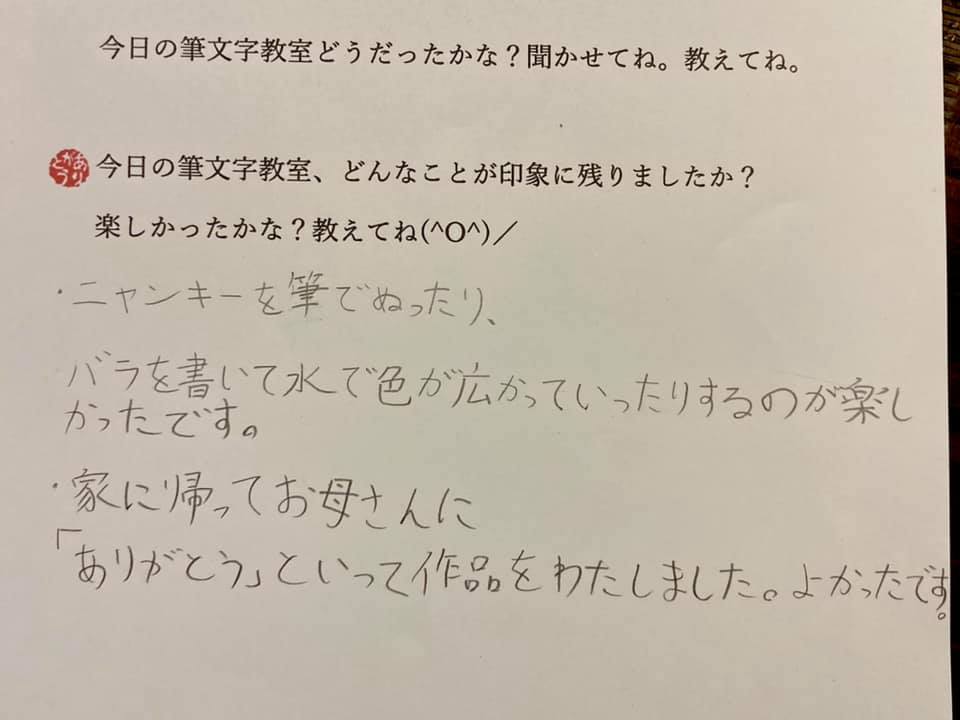 今日の筆文字教室どうだったかな？聞かせてね。教えてね。
ありがとう
今日の筆文字教室、どんなことが印象に残りましたか？
楽しかったかな？教えてね(^O^)／
・ニャンキーを筆でぬったり、
バラを書いて水で色が広がっていったりするのが楽し
かったです。
・家に帰ってお母さんに
「ありがとう」といって作品をわたしました。よかったです。